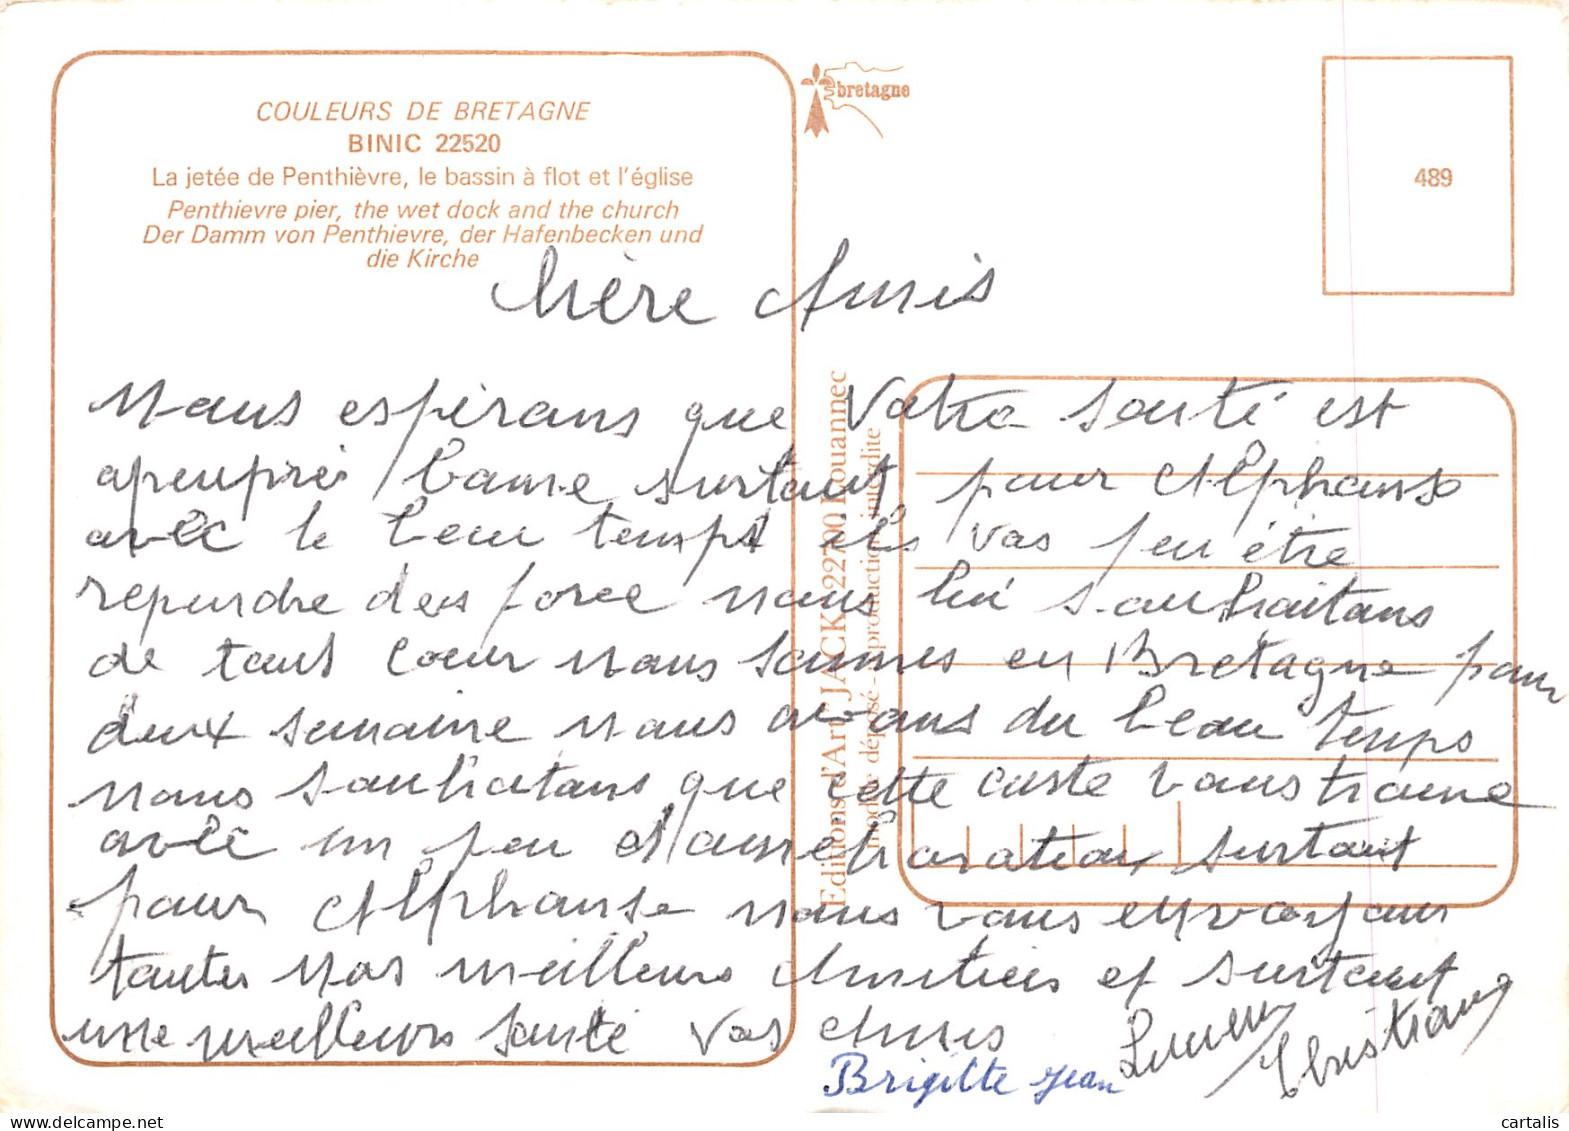 COULEURS DE BRETAGNE
BINIC 22520
La jetée de Penthièvre, le bassin à flot et l'église
Penthievre pier, the wet dock and the church
Der Damm von Penthievre, der Hafenbecken und
die Kirche
bretagne
489
Editions d'Art JACK 22700 Louannec
modèle déposé - reproduction interdite
Chière Amis
Nous espérons que votre santé est
apeuprés bonne surtout pour Alphonse
avec le beau temps ils vas peu être
rependre des force nous lui souhaitons
de tout cœur nous sommes en Bretagne pour
deux semaine nous avons du beau temps
nous souhaitons que cette carte vous trouve
avec un peu d'amélioration surtout
pour Alphonse nous vous envoyons
toutes nos meilleurs amitiers et surtout
une meilleurs santé vos amis
Brigitte Jean Lucien Christiane
cartalis